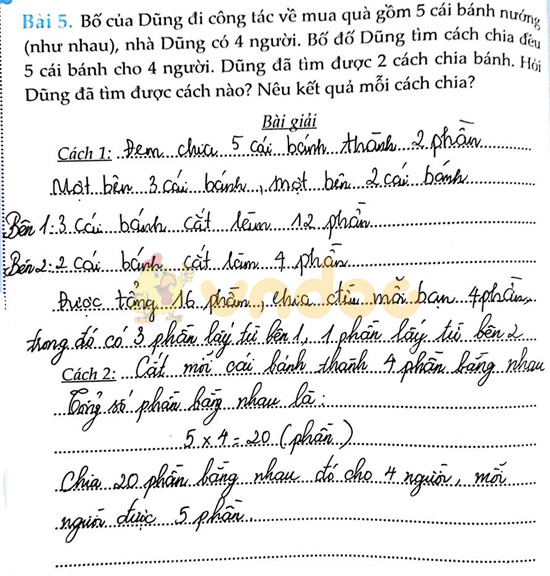 Bài 5. Bố của Dũng đi công tác về mua quà gồm 5 cái bánh nướng
(như nhau), nhà Dũng có 4 người. Bố đố Dũng tìm cách chia đều
5 cái bánh cho 4 người. Dũng đã tìm được 2 cách chia bánh. Hỏi
Dũng đã tìm được cách nào? Nêu kết quả mỗi cách chia?
Bài giải
Cách 1: Đem chia 5 cái bánh thành 2 phần
Một bên 3 cái bánh, một bên 2 cái bánh
Bên 1: 3 cái bánh cắt làm 12 phần
Bên 2: 2 cái bánh cắt làm 4 phần
Được tổng 16 phần, chia đều mỗi bạn 4 phần,
trong đó có 3 phần lấy từ bên 1, 1 phần lấy từ bên 2
Cách 2: Cắt mỗi cái bánh thành 4 phần bằng nhau
Tổng số phần bằng nhau là:
5 x 4 = 20 (phần)
Chia 20 phần bằng nhau đó cho 4 người, mỗi
người được 5 phần
vndoc